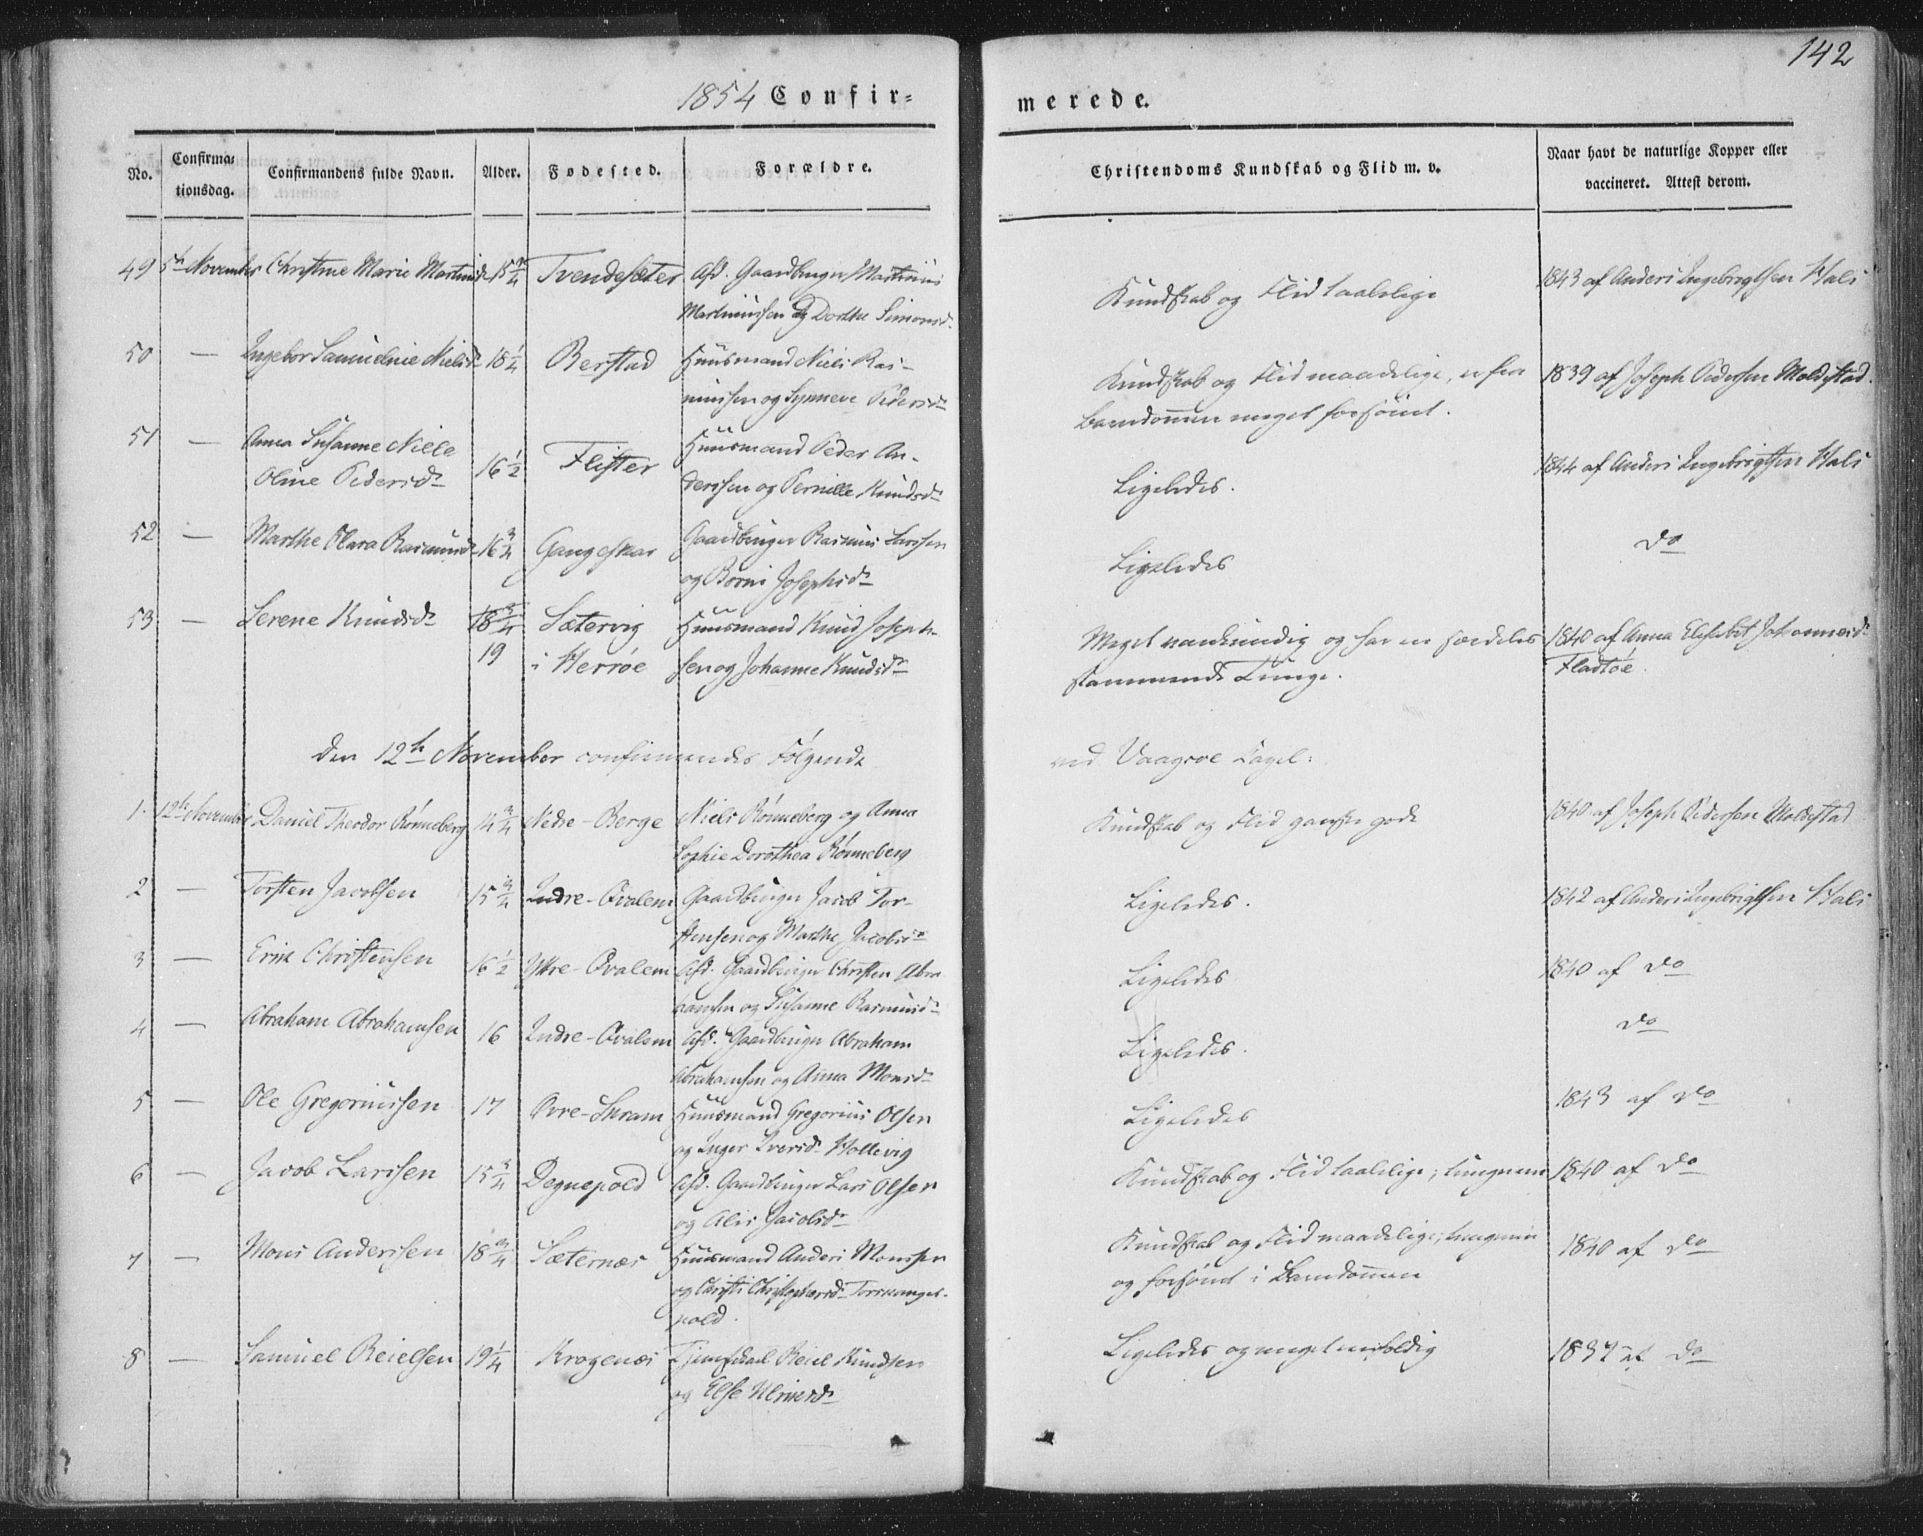 1854 Confir-
merede.
142
No.
Confirma-
tionsdag.
Confirmandens fulde Navn.
Alder.
Fødested.
Forældre.
Christendoms Kundskab og Flid m. v.
Naar havt de naturlige Kopper eller
vaccineret. Attest derom.
49 5te November Christine Marie Martinisd 15 3/4 Tvendesæter Afd. Gaardbruger Martinus
Martinussen og Dorthe Simonsd.
Kundskab og Flid taalelige
1843 af Anders Ingebrigtsen Hals
50 — Ingebor Samueline Nielsdr 18 1/4 Berstad Huusmand Niels Ras-
mussen og Synneve Pedersdr
Kundskab og Flid maadelige, er fra
Barndommen meget forsømt.
1839 af Joseph Pedersen Moldestad.
51 — Anna Susanne Nille
Oline Pedersdr
16 1/2 Flister Huusmand Peder An-
derssen og Pernille Knudsdr
Ligeledes.
1844 af Anders Ingebrigtsen Hals
52 — Marthe Olara Rasmusdr 16 3/4 Gangeskar Gaardbruger Rasmus Larssen
og Børni Josephsdr
Ligeledes
do
53 — Serene Knudsdr 18 3/4 Sætervig Huusmand Knud Joseph-
19 i Herrøe sen og Johanne Knudsdr
Meget vankundig og har en særdeles
stammende Tunge.
1840 af Anna Elisabet Johannesdr
Fladtøe.
Den 12te November confirmeredes Følgende
ved Vaagsøe Capel:
1. 12te November Daniel Theodor Rønneberg 14 3/4 Nedre-Berge Niels Rønneberg og Anna
Sophie Dorothea Rønneberg
Kundskab og Flid ganske gode
1840 af Joseph Pedersen Moldestad
2 — Torsten Jacobsen 15 3/4 Indre-Qvalem Gaardbruger Jacob Tor-
stensen og Marthe Jacobsdr
Ligeledes.
1842 af Anders Ingebrigtsen Hals
3 — Erik Christensen 16 1/2 Ytre-Qvalem Afd. Gaardbruger Christen Abra-
hamsen og Susanne Rasmusdr
Ligeledes
1840 af do
4 — Abraham Abrahamsen 16 Indre-Qvalem Afd. Gaardbruger Abraham
Abrahamsen og Anna Monsdr
Ligeledes.
do
5 — Ole Gregoriussen 17 Øvre-Skram Huusmand Gregorius Olsen
og Inger Iversdr Hollevig
Ligeledes
1843 af do
6 — Jacob Larssen 15 3/4 Degnepold Afd. Gaardbruger Lars Olsen
og Alis Jacobsdr
Kundskab og Flid taalelige; tungnem
1840 af do
7 — Mons Anderssen 18 3/4 Sæternæs Huusmand Anders Monssen
og Christi Christophersdr Torskangel-
pold.
Kundskab og Flid maadelige; tungnem
og forsømt i Barndommen
1840 af do
8 — Samuel Reielsen 19 1/4 Kragenæs Reiel Knudsen
og Else
Ligeledes og meget
af do